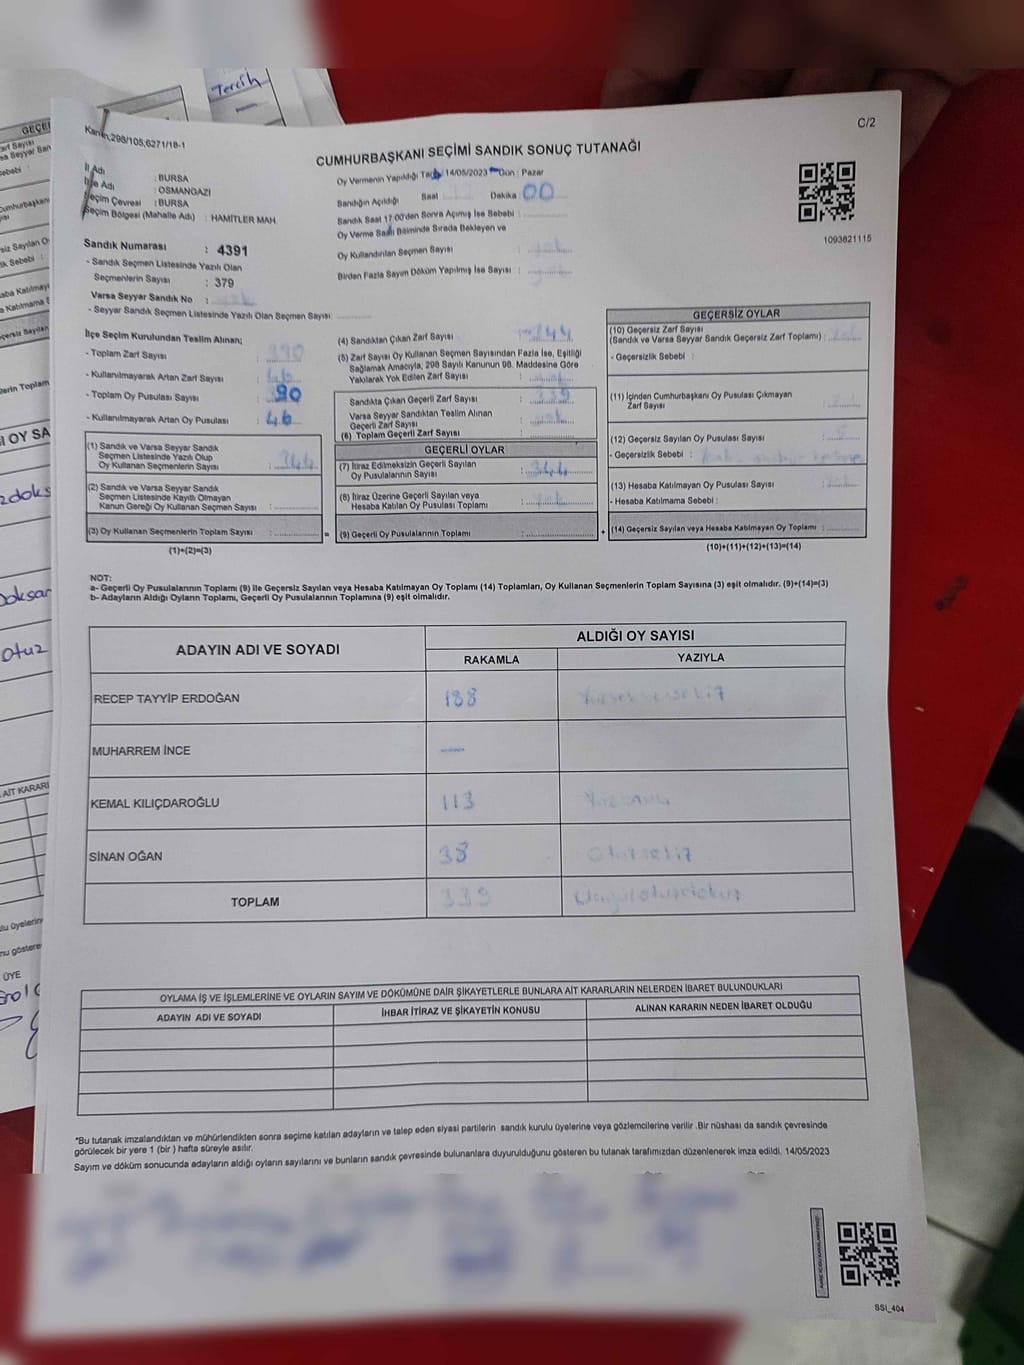 Tercih
C/2
Kanun;298/105;6271/18-1
CUMHURBAŞKANI SEÇİMİ SANDIK SONUÇ TUTANAĞI
İl Adı : BURSA
İlçe Adı : OSMANGAZİ
Seçim Çevresi : BURSA
Seçim Bölgesi (Mahalle Adı) : HAMİTLER MAH.
Sandık Numarası : 4391
- Sandık Seçmen Listesinde Yazılı Olan
Seçmenlerin Sayısı : 379
Varsa Seyyar Sandık No :
- Seyyar Sandık Seçmen Listesinde Yazılı Olan Seçmen Sayısı:
Oy Vermenin Yapıldığı Tarih 14/05/2023 Gün : Pazar
Sandığın Açıldığı Saat Dakika 00
Sandık Saat 17:00'den Sonra Açımış İse Sebebi :
Oy Verme Saati Bitiminde Sırada Bekleyen ve
Oy Kullandırılan Seçmen Sayısı :
Birden Fazla Sayım Döküm Yapılmış İse Sayısı :
1093821115
İlçe Seçim Kurulundan Teslim Alınan;
- Toplam Zarf Sayısı : 390
- Kullanılmayarak Artan Zarf Sayısı : 46
- Toplam Oy Pusulası Sayısı : 390
- Kullanılmayarak Artan Oy Pusulası : 46
(1) Sandık ve Varsa Seyyar Sandık
Seçmen Listesinde Yazılı Olup
Oy Kullanan Seçmenlerin Sayısı : 344
(2) Sandık ve Varsa Seyyar Sandık
Seçmen Listesinde Kayıtlı Olmayan
Kanun Gereği Oy Kullanan Seçmen Sayısı :
(3) Oy Kullanan Seçmenlerin Toplam Sayısı : =
(1)+(2)=(3)
(4) Sandıktan Çıkan Zarf Sayısı : 344
(5) Zarf Sayısı Oy Kullanan Seçmen Sayısından Fazla İse, Eşitliği
Sağlamak Amacıyla, 298 Sayılı Kanunun 98. Maddesine Göre
Yakılarak Yok Edilen Zarf Sayısı :
Sandıkta Çıkan Geçerli Zarf Sayısı : 339
Varsa Seyyar Sandıktan Teslim Alınan
Geçerli Zarf Sayısı :
(6) Toplam Geçerli Zarf Sayısı :
GEÇERLİ OYLAR
(7) İtiraz Edilmeksizin Geçerli Sayılan
Oy Pusulalarının Sayısı : 344
(8) İtiraz Üzerine Geçerli Sayılan veya
Hesaba Katılan Oy Pusulası Toplamı :
(9) Geçerli Oy Pusulalarının Toplamı : +
GEÇERSİZ OYLAR
(10) Geçersiz Zarf Sayısı
(Sandık ve Varsa Seyyar Sandık Geçersiz Zarf Toplamı) :
- Geçersizlik Sebebi :
(11) İçinden Cumhurbaşkanı Oy Pusulası Çıkmayan
Zarf Sayısı :
(12) Geçersiz Sayılan Oy Pusulası Sayısı : 5
- Geçersizlik Sebebi :
(13) Hesaba Katılmayan Oy Pusulası Sayısı :
- Hesaba Katılmama Sebebi :
(14) Geçersiz Sayılan veya Hesaba Katılmayan Oy Toplamı :
(10)+(11)+(12)+(13)=(14)
NOT:
a- Geçerli Oy Pusulalarının Toplamı (9) ile Geçersiz Sayılan veya Hesaba Katılmayan Oy Toplamı (14) Toplamları, Oy Kullanan Seçmenlerin Toplam Sayısına (3) eşit olmalıdır. (9)+(14)=(3)
b- Adayların Aldığı Oyların Toplamı, Geçerli Oy Pusulalarının Toplamına (9) eşit olmalıdır.
ADAYIN ADI VE SOYADI ALDIĞI OY SAYISI
RAKAMLA YAZIYLA
RECEP TAYYİP ERDOĞAN 188 Yüzseksensekiz
MUHARREM İNCE —
KEMAL KILIÇDAROĞLU 113
SİNAN OĞAN 38 Otuzsekiz
TOPLAM 339 Üçyüzotuzdokuz
OYLAMA İŞ VE İŞLEMLERİNE VE OYLARIN SAYIM VE DÖKÜMÜNE DAİR ŞİKAYETLERLE BUNLARA AİT KARARLARIN NELERDEN İBARET BULUNDUKLARI
ADAYIN ADI VE SOYADI İHBAR İTİRAZ VE ŞİKAYETİN KONUSU ALINAN KARARIN NEDEN İBARET OLDUĞU
*Bu tutanak imzalandıktan ve mühürlendikten sonra seçime katılan adayların ve talep eden siyasi partilerin sandık kurulu üyelerine veya gözlemcilerine verilir .Bir nüshası da sandık çevresinde
görülecek bir yere 1 (bir ) hafta süreyle asılır.
Sayım ve döküm sonucunda adayların aldığı oyların sayılarını ve bunların sandık çevresinde bulunanlara duyurulduğunu gösteren bu tutanak tarafımızdan düzenlenerek imza edildi. 14/05/2023
SSI_404